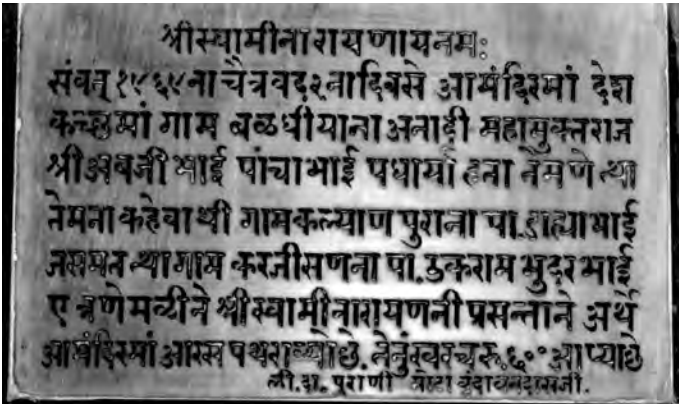 श्रीस्वामीनारायणायनमः
संवत् १९६९ना चैत्रवद २ना दिवसे आमंदिरमां देश
कच्छमां गाम बळधीयाना अनादी महामुक्तराज
श्रीअबजीभाई पांचाभाई पधार्या हता तेमणे तथा
तेमना कहेवाथी गामकल्याण पुराना पा. डाह्याभाई
जसमत तथा गाम करजीसणना पा. उकराम भुदरभाई
ए त्रणे मळीने श्रीस्वामीनारायणनी प्रसन्ताने अर्थे
आमंदिरमां आरस पथराव्यो छे. तेनुं खरच रू. ६०० आप्या छे
ली. दा. पुराणी वृंदावनदासजी.